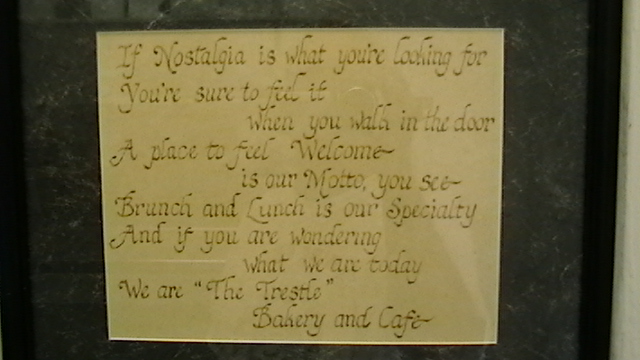 If Nostalgia is what you're looking for
You're sure to feel it
when you walk in the door
A place to feel Welcome
is our Motto, you see
Brunch and Lunch is our Specialty
And if you are wondering
what we are today
We are "The Trestle"
Bakery and Cafe